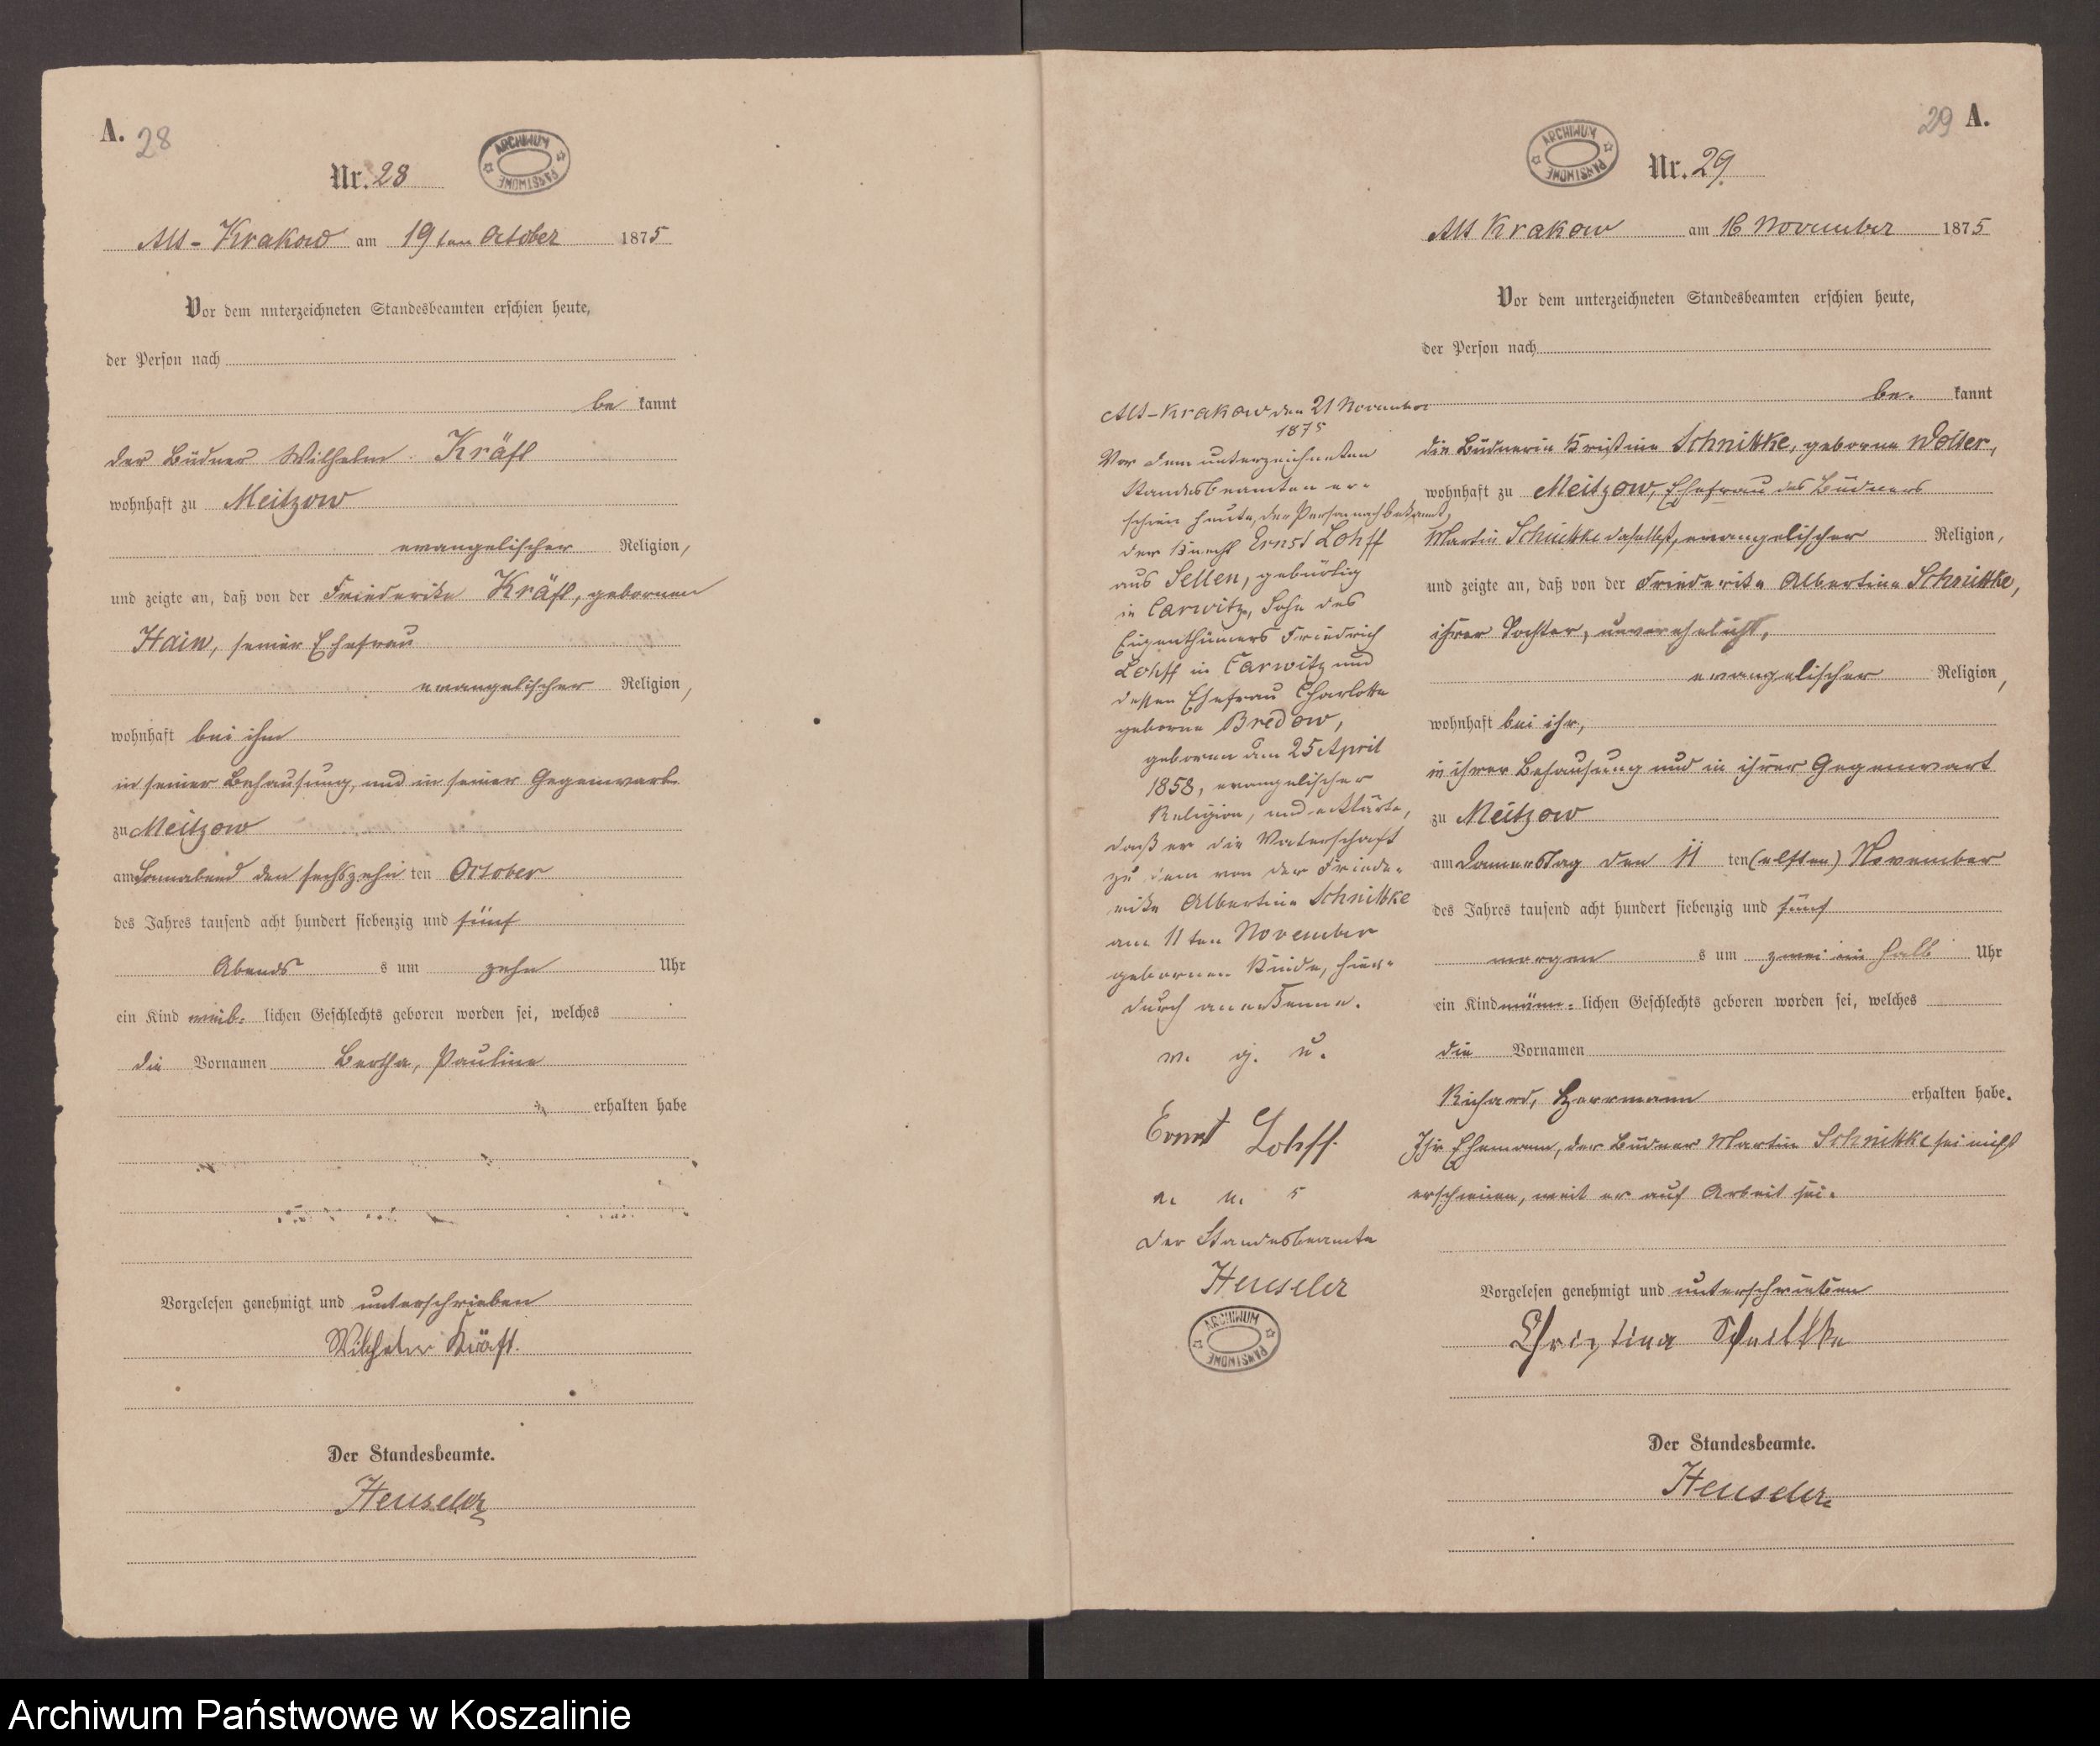 A.
28
Nr. 28
ARCHIWUM PAŃSTWOWE
Alt-Krakow am 19ten October 1875
Vor dem unterzeichneten Standesbeamten erschien heute,
der Person nach
be kannt
der Büdner Wilhelm Kräft
wohnhaft zu Meitzow
evangelischer Religion,
und zeigte an, daß von der Friederike Kräft, gebornen
Hain, seiner Ehefrau
evangelischer Religion,
wohnhaft bei ihm
in seiner Behausung, und in seiner Gegenwart
zu Meitzow
am Sonnabend den sechszehn ten October
des Jahres tausend acht hundert siebenzig und fünf
Abends s um zehn Uhr
ein Kind weib- lichen Geschlechts geboren worden sei, welches
die Vornamen Bertha, Pauline
erhalten habe
Vorgelesen genehmigt und unterschrieben
Wilhelm Kräft.
Der Standesbeamte.
Heuseler
29 A.
ARCHIWUM PAŃSTWOWE
Nr. 29
Alt Krakow am 16 November 1875
Vor dem unterzeichneten Standesbeamten erschien heute,
der Person nach
be- kannt
die Büdnerin Kristine Schnittke, geborne Woller,
wohnhaft zu Meitzow, Ehefrau des Büdners
Martin Schnittke daselbst, evangelischer Religion,
und zeigte an, daß von der Friederike Albertine Schnittke,
ihrer Tochter, unverehelicht,
evangelischer Religion,
wohnhaft bei ihr,
in ihrer Behausung und in ihrer Gegenwart
zu Meitzow
am Donnerstag den 11 ten (elften) November
des Jahres tausend acht hundert siebenzig und fünf
morgen s um zwei ein halb Uhr
ein Kind männ- lichen Geschlechts geboren worden sei, welches
die Vornamen
Richard, Herrmann erhalten habe.
Ihr Ehemann, der Büdner Martin Schnittke sei nicht
erschienen, weil er auf Arbeit sei.
Vorgelesen genehmigt und unterschrieben
Christina Schnittke
Der Standesbeamte.
Heuseler
Alt-Krakow den 21 November
1875
Vor dem unterzeichneten
Standesbeamten er-
schien heute, der Person nach bekannt,
der Knecht Ernst Lohff
aus Sellen, gebürtig
in Carwitz, Sohn des
Eigenthümers Friedrich
Lohff in Carwitz und
dessen Ehefrau Charlotte
geborne Bredow,
geboren am 25 April
1858, evangelischer
Religion, und erklärte,
daß er die Vaterschaft
zu dem von der Friede-
rike Albertine Schnittke
am 11ten November
gebornen Kinde, hier-
durch anerkenne.
v. g. u.
Ernst Lohff.
a. u. s
Der Standesbeamte
Heuseler
ARCHIWUM PAŃSTWOWE
Archiwum Państwowe w Koszalinie